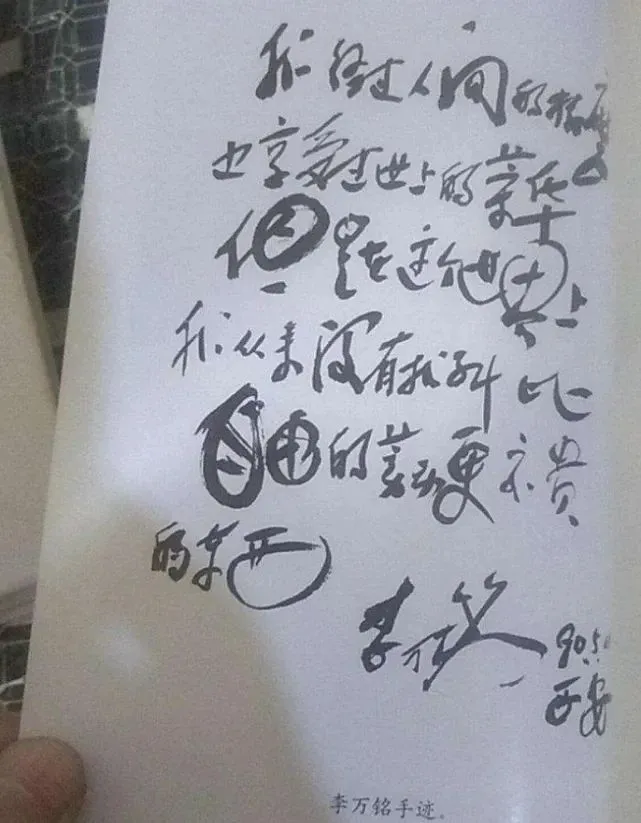 我经过人间的
也享受过世上的荣华
但是在这个世界上
我从来没有找到比
自由的劳动更宝贵
的东西
李万铭
90.5
西安
李万铭手迹。